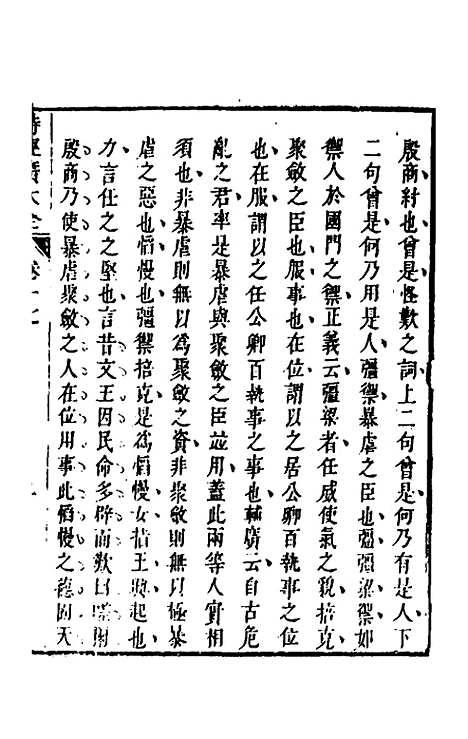 殷商紂也曾是怪歎之詞上二句曾是何乃有是人下
二句曾是何乃用是人彊禦暴虐之臣也彊彊梁禦如
禦人於國門之禦正義云彊梁者任威使氣之貌掊克
聚斂之臣也服事也在位謂以之居公卿百執事之位
也在服謂以之任公卿百執事之事也輔廣云自古危
亂之君率是暴虐與聚斂之臣竝用蓋此兩等人實相
須也非暴虐則無以為聚斂之資非聚斂則無以極暴
虐之惡也慆慢也彊禦掊克是為慆慢女指王興起也
力言任之之堅也言昔文王因民命多辟而歎曰咨爾
殷商乃使暴虐聚斂之人在位用事此慆慢之德固天
詩經 大全 卷十七